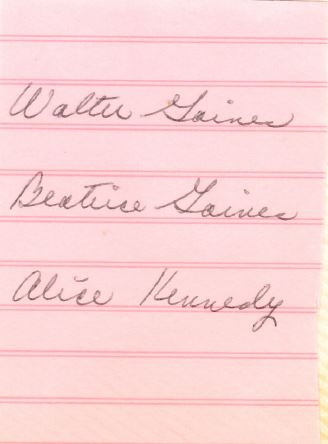 Walter Gaines
Beatrice Gaines
Alice Kennedy